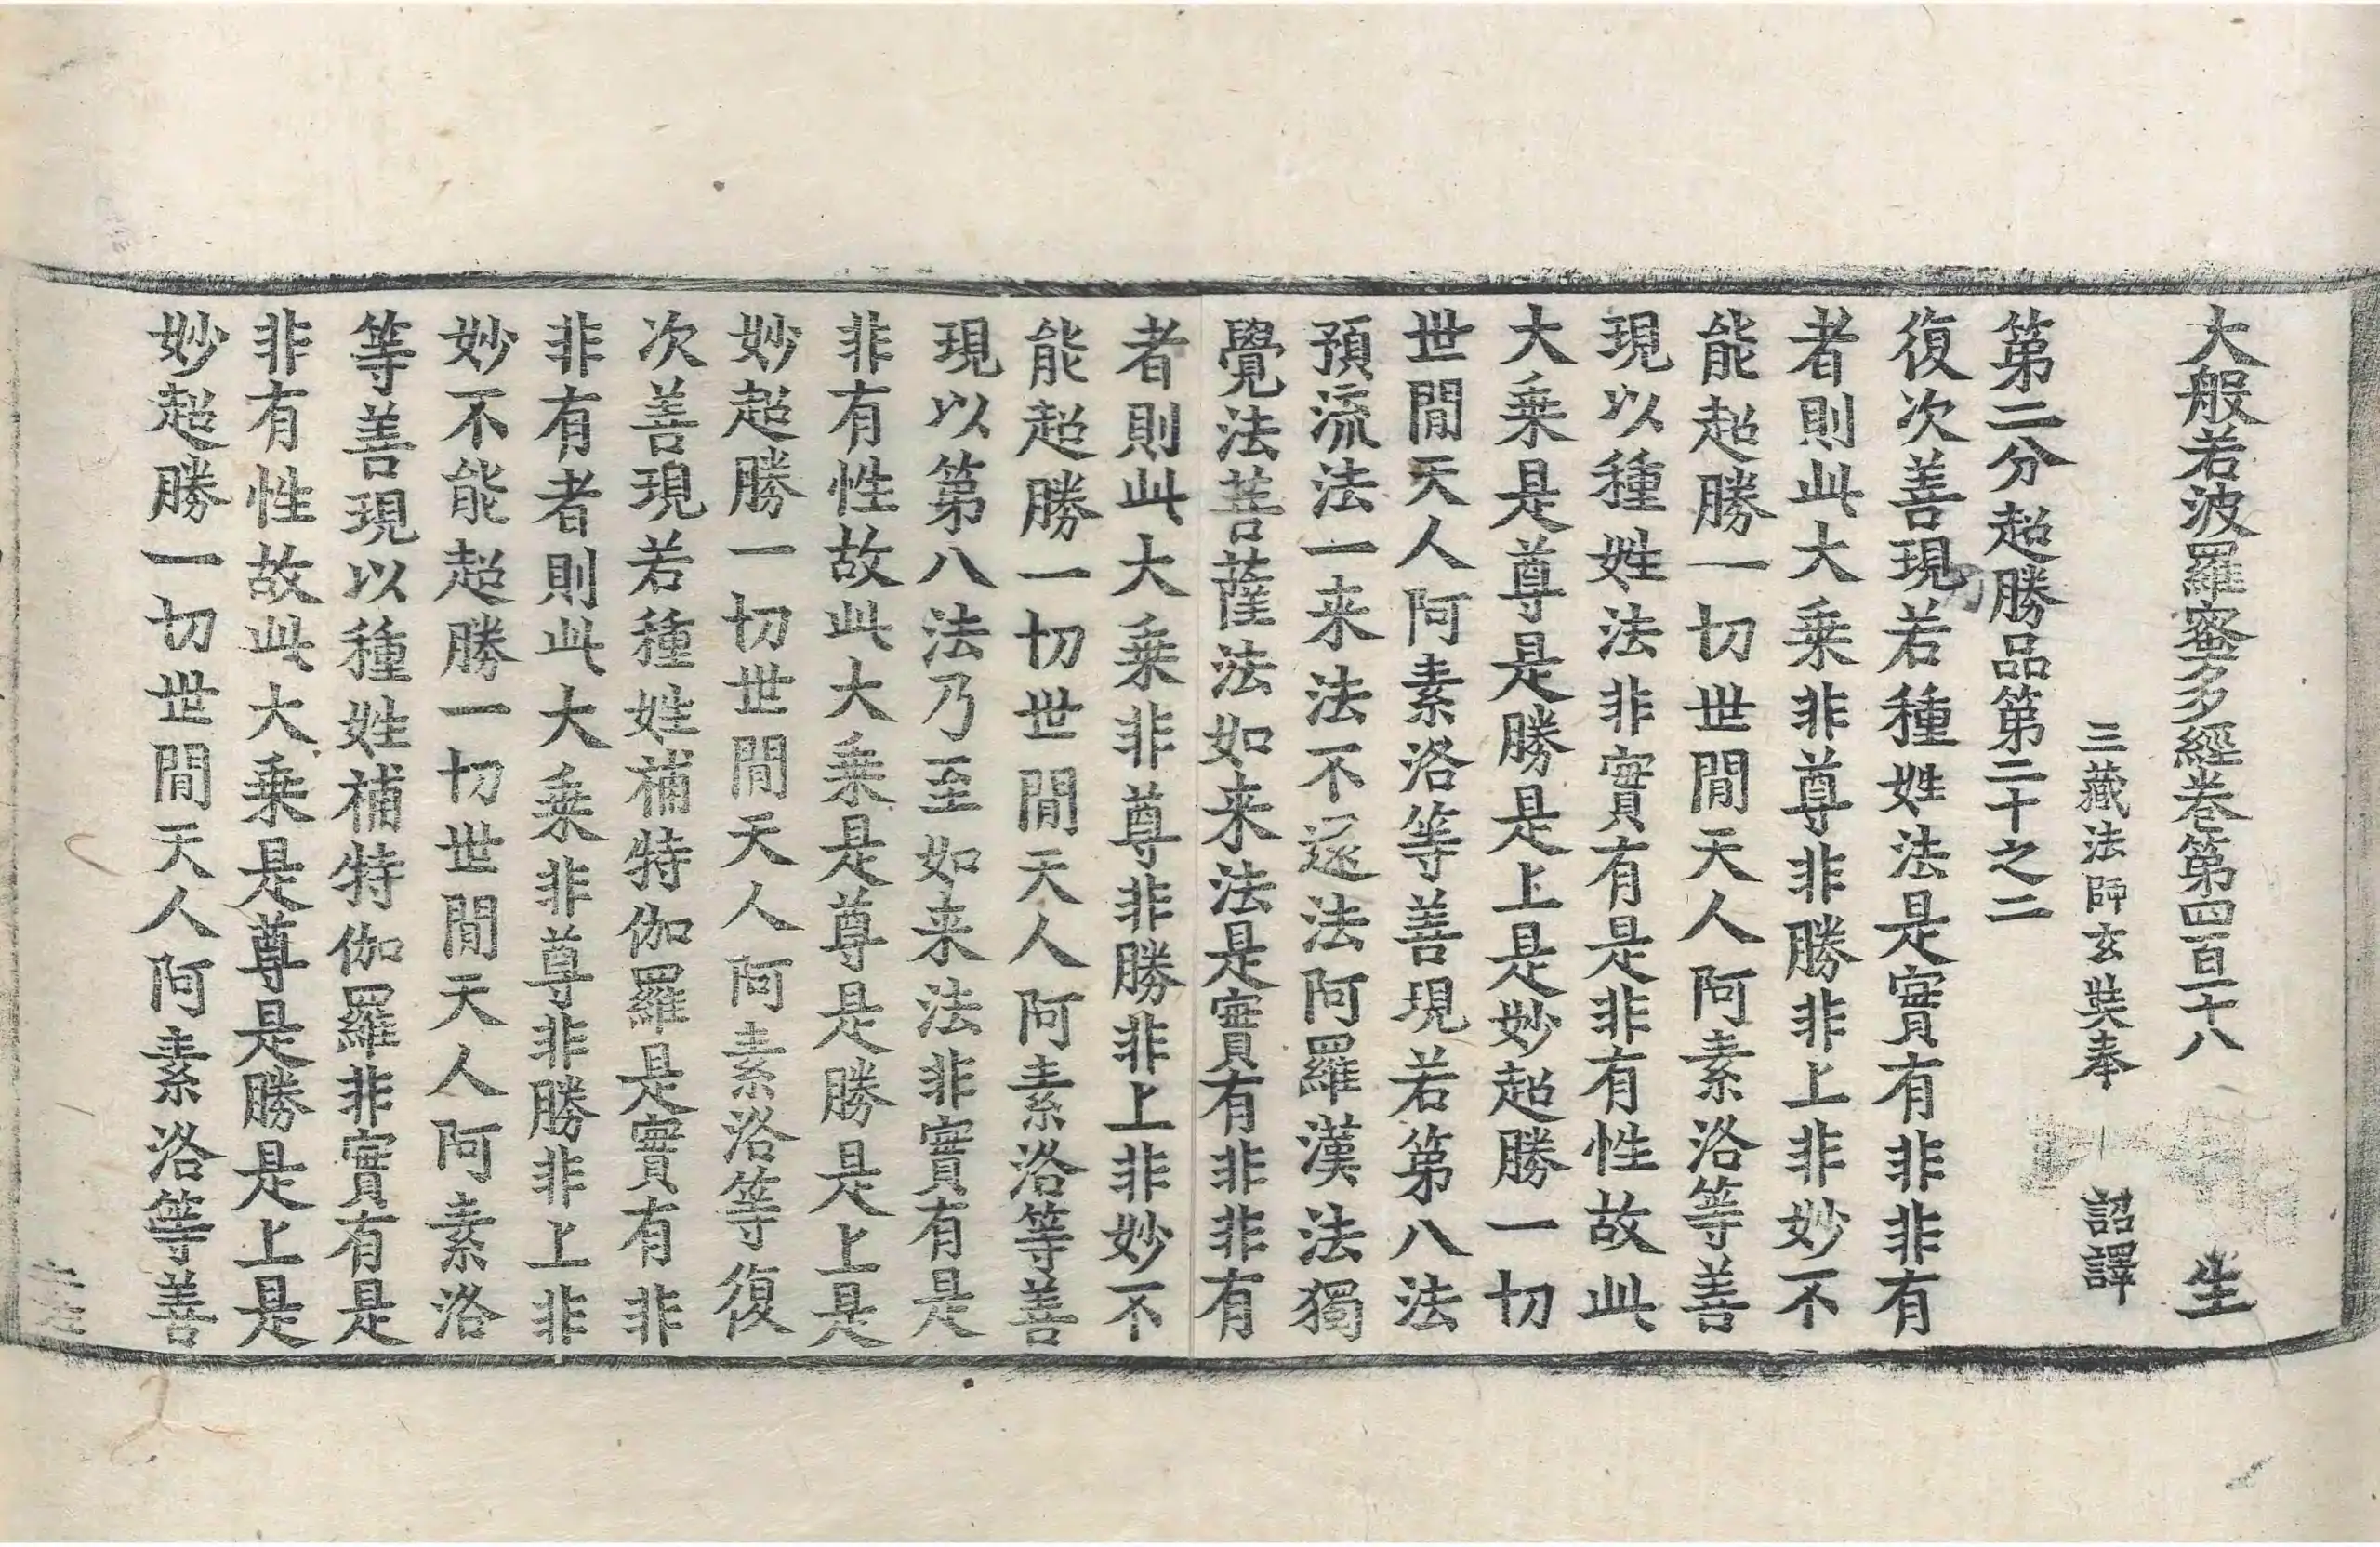 大般若波羅蜜多經卷第四百一十八 生
三藏法師玄奘奉 詔譯
第二分超勝品第二十之二
復次善現若種姓法是實有非非有
者則此大乗非尊非勝非上非妙不
能超勝一切世間天人阿素洛等善
現以種姓法非實有是非有性故此
大乗是尊是勝是上是妙超勝一切
世間天人阿素洛等善現若第八法
預流法一来法不還法阿羅漢法獨
覺法菩薩法如来法是實有非非有
者則此大乗非尊非勝非上非妙不
能超勝一切世間天人阿素洛等善
現以第八法乃至如来法非實有是
非有性故此大乗是尊是勝是上是
妙超勝一切世間天人阿素洛等復
次善現若種姓補特伽羅是實有非
非有者則此大乗非尊非勝非上非
妙不能超勝一切世間天人阿素洛
等善現以種姓補特伽羅非實有是
非有性故此大乗是尊是勝是上是
妙超勝一切世間天人阿素洛等善